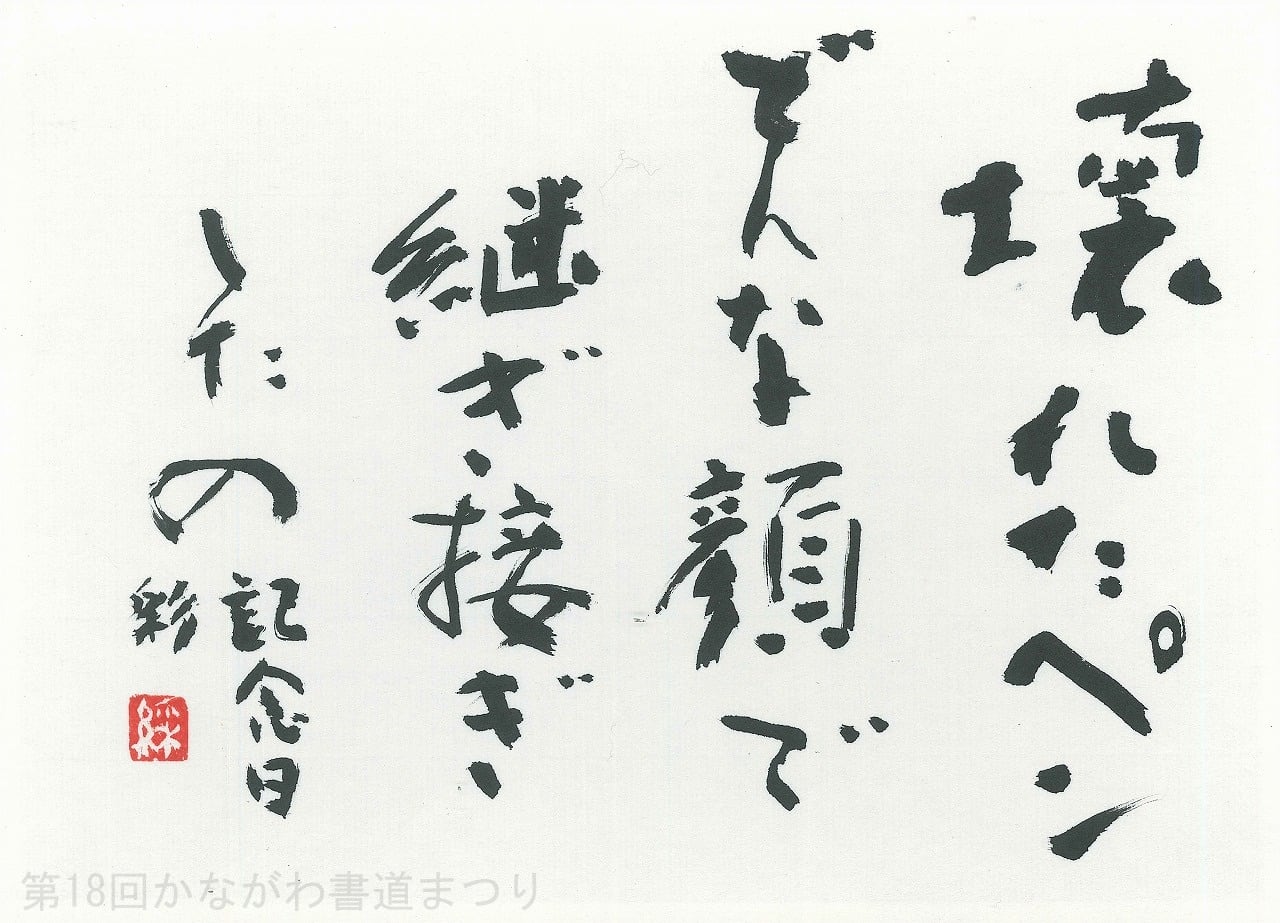 壊れたペン
どんな顔で
継ぎ接ぎ
した
の記念日
彩
綵
第18回かながわ書道まつり